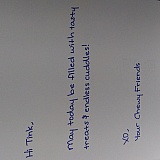 Hi Tink,
May today be filled with tasty
treats & endless cuddles!
XO,
Your Chewy Friends